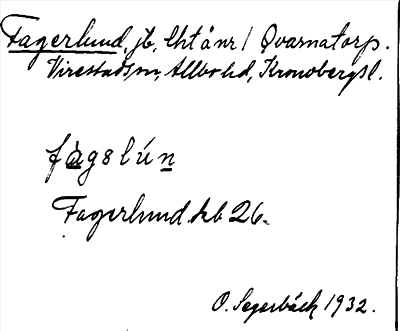 Fagerlund, jb, lht å nr 1 Qvarnatorp.
Virestads sn, Allbo hd, Kronobergs l.
fàgslún
Fagerlund kb 26.
O. Segerbäck 1932.